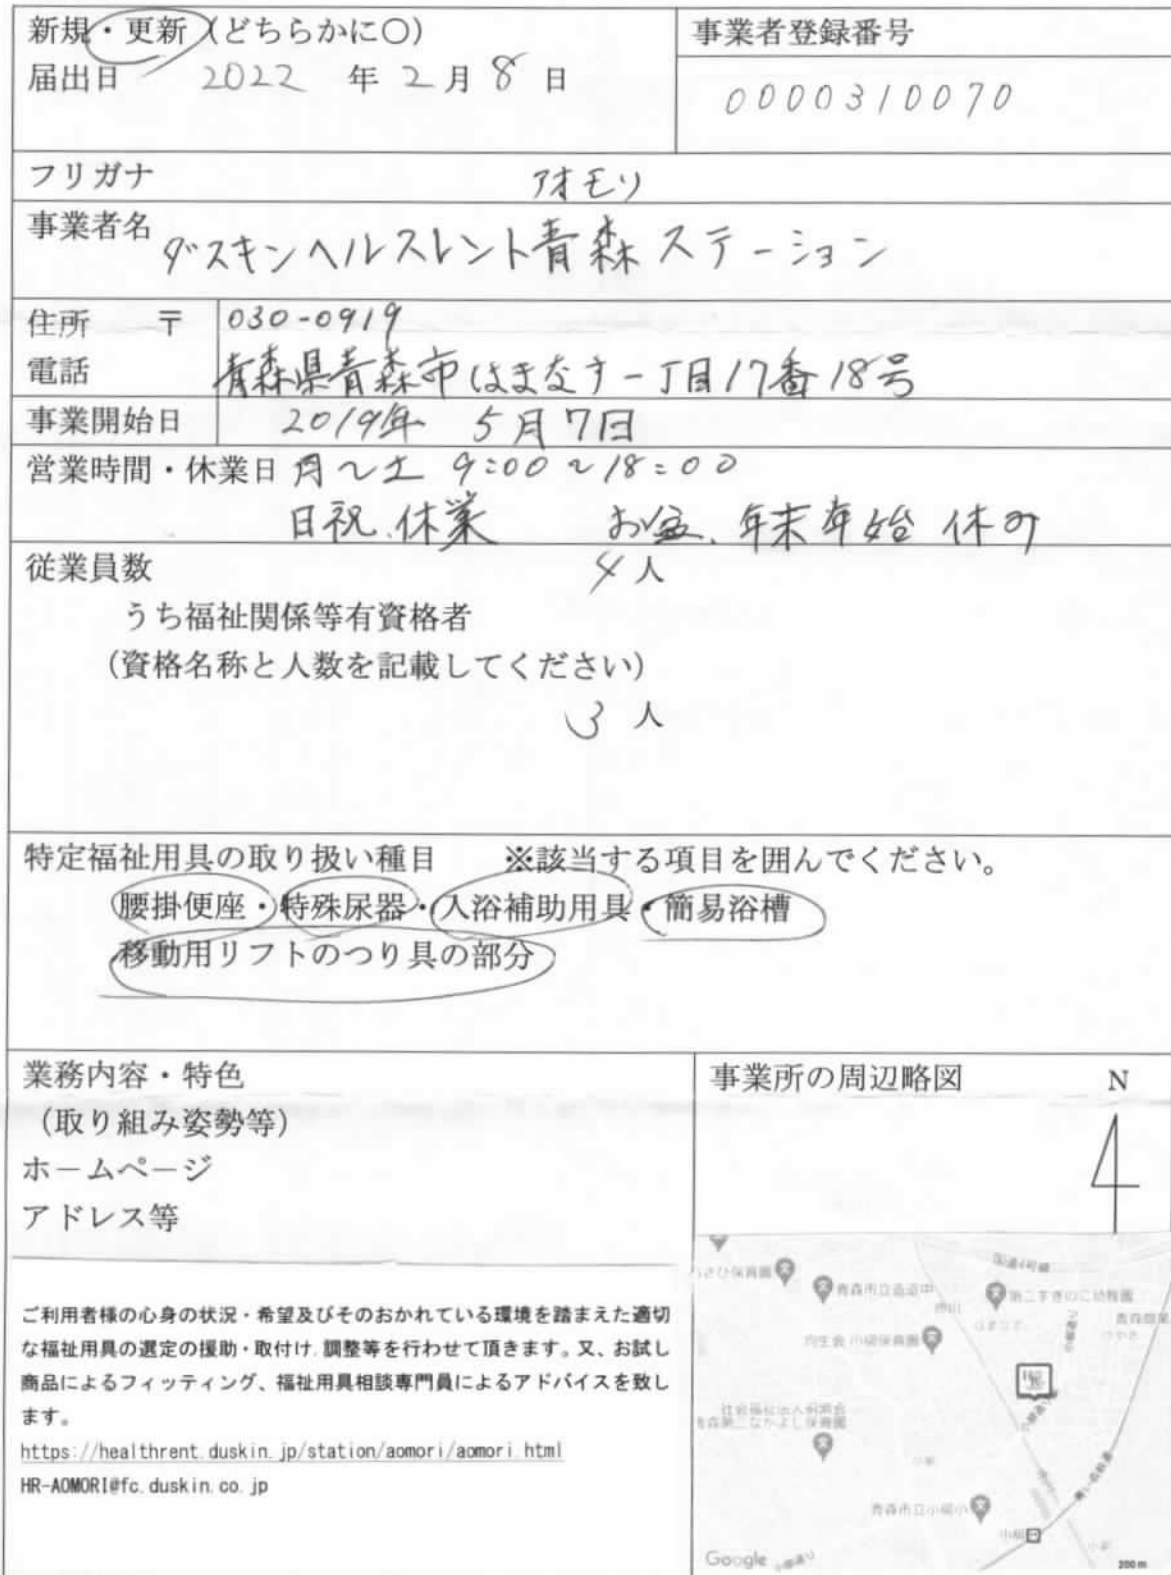 新規・更新（どちらかに○）
届出日 2022 年 2 月 8 日
事業者登録番号
0000310070
フリガナ アオモリ
事業者名 ダスキンヘルスレント青森ステーション
住所 〒 030-0919
電話 青森県青森市はまなす一丁目17番18号
事業開始日 2019年 5月7日
営業時間・休業日 月～土 9:00～18:00
日祝.休業 お盆.年末年始 休み
従業員数 4人
うち福祉関係等有資格者
（資格名称と人数を記載してください）
3人
特定福祉用具の取り扱い種目 ※該当する項目を囲んでください。
腰掛便座・特殊尿器・入浴補助用具・簡易浴槽
移動用リフトのつり具の部分
業務内容・特色
（取り組み姿勢等）
ホームページ
アドレス等
ご利用者様の心身の状況・希望及びそのおかれている環境を踏まえた適切
な福祉用具の選定の援助・取付け.調整等を行わせて頂きます。又、お試し
商品によるフィッティング、福祉用具相談専門員によるアドバイスを致し
ます。
https://healthrent.duskin.jp/station/aomori/aomori.html
HR-AOMORI@fc.duskin.co.jp
事業所の周辺略図 N
国道4号線
青森市立造道中
第二すぎのこ幼稚園
はまなす
小柳保育園
青森第二なかよし保育園
青森市立小柳小
小柳
Google
200 m